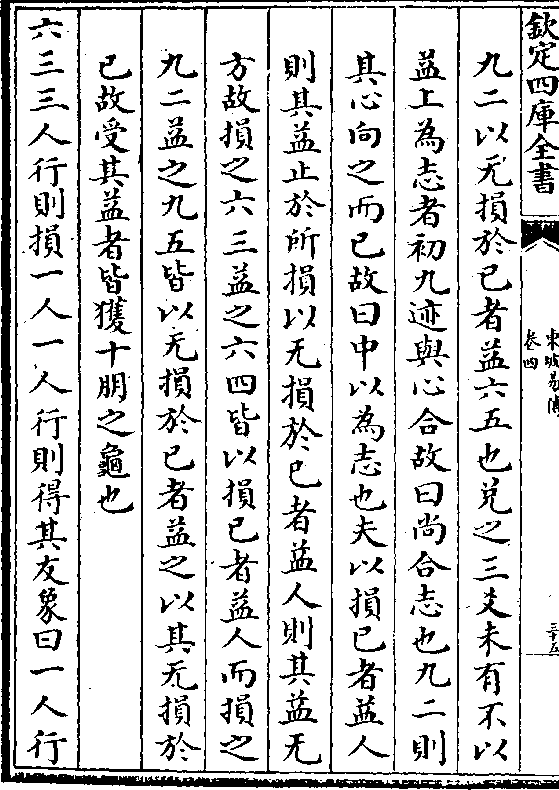 欽定四庫全書
東坡易傳
卷四
三十五
九二以无損於已者益六五也兌之三爻未有不以
益上為志者初九迹與心合故曰尚合志也九二則
其心向之而已故曰中以為志也夫以損已者益人
則其益止於所損以无損於已者益人則其益无
方故損之六三益之六四皆以損已者益人而損之
九二益之九五皆以无損於已者益之以其无損於
已故受其益者皆獲十朋之龜也
六三三人行則損一人一人行則得其友象曰一人行